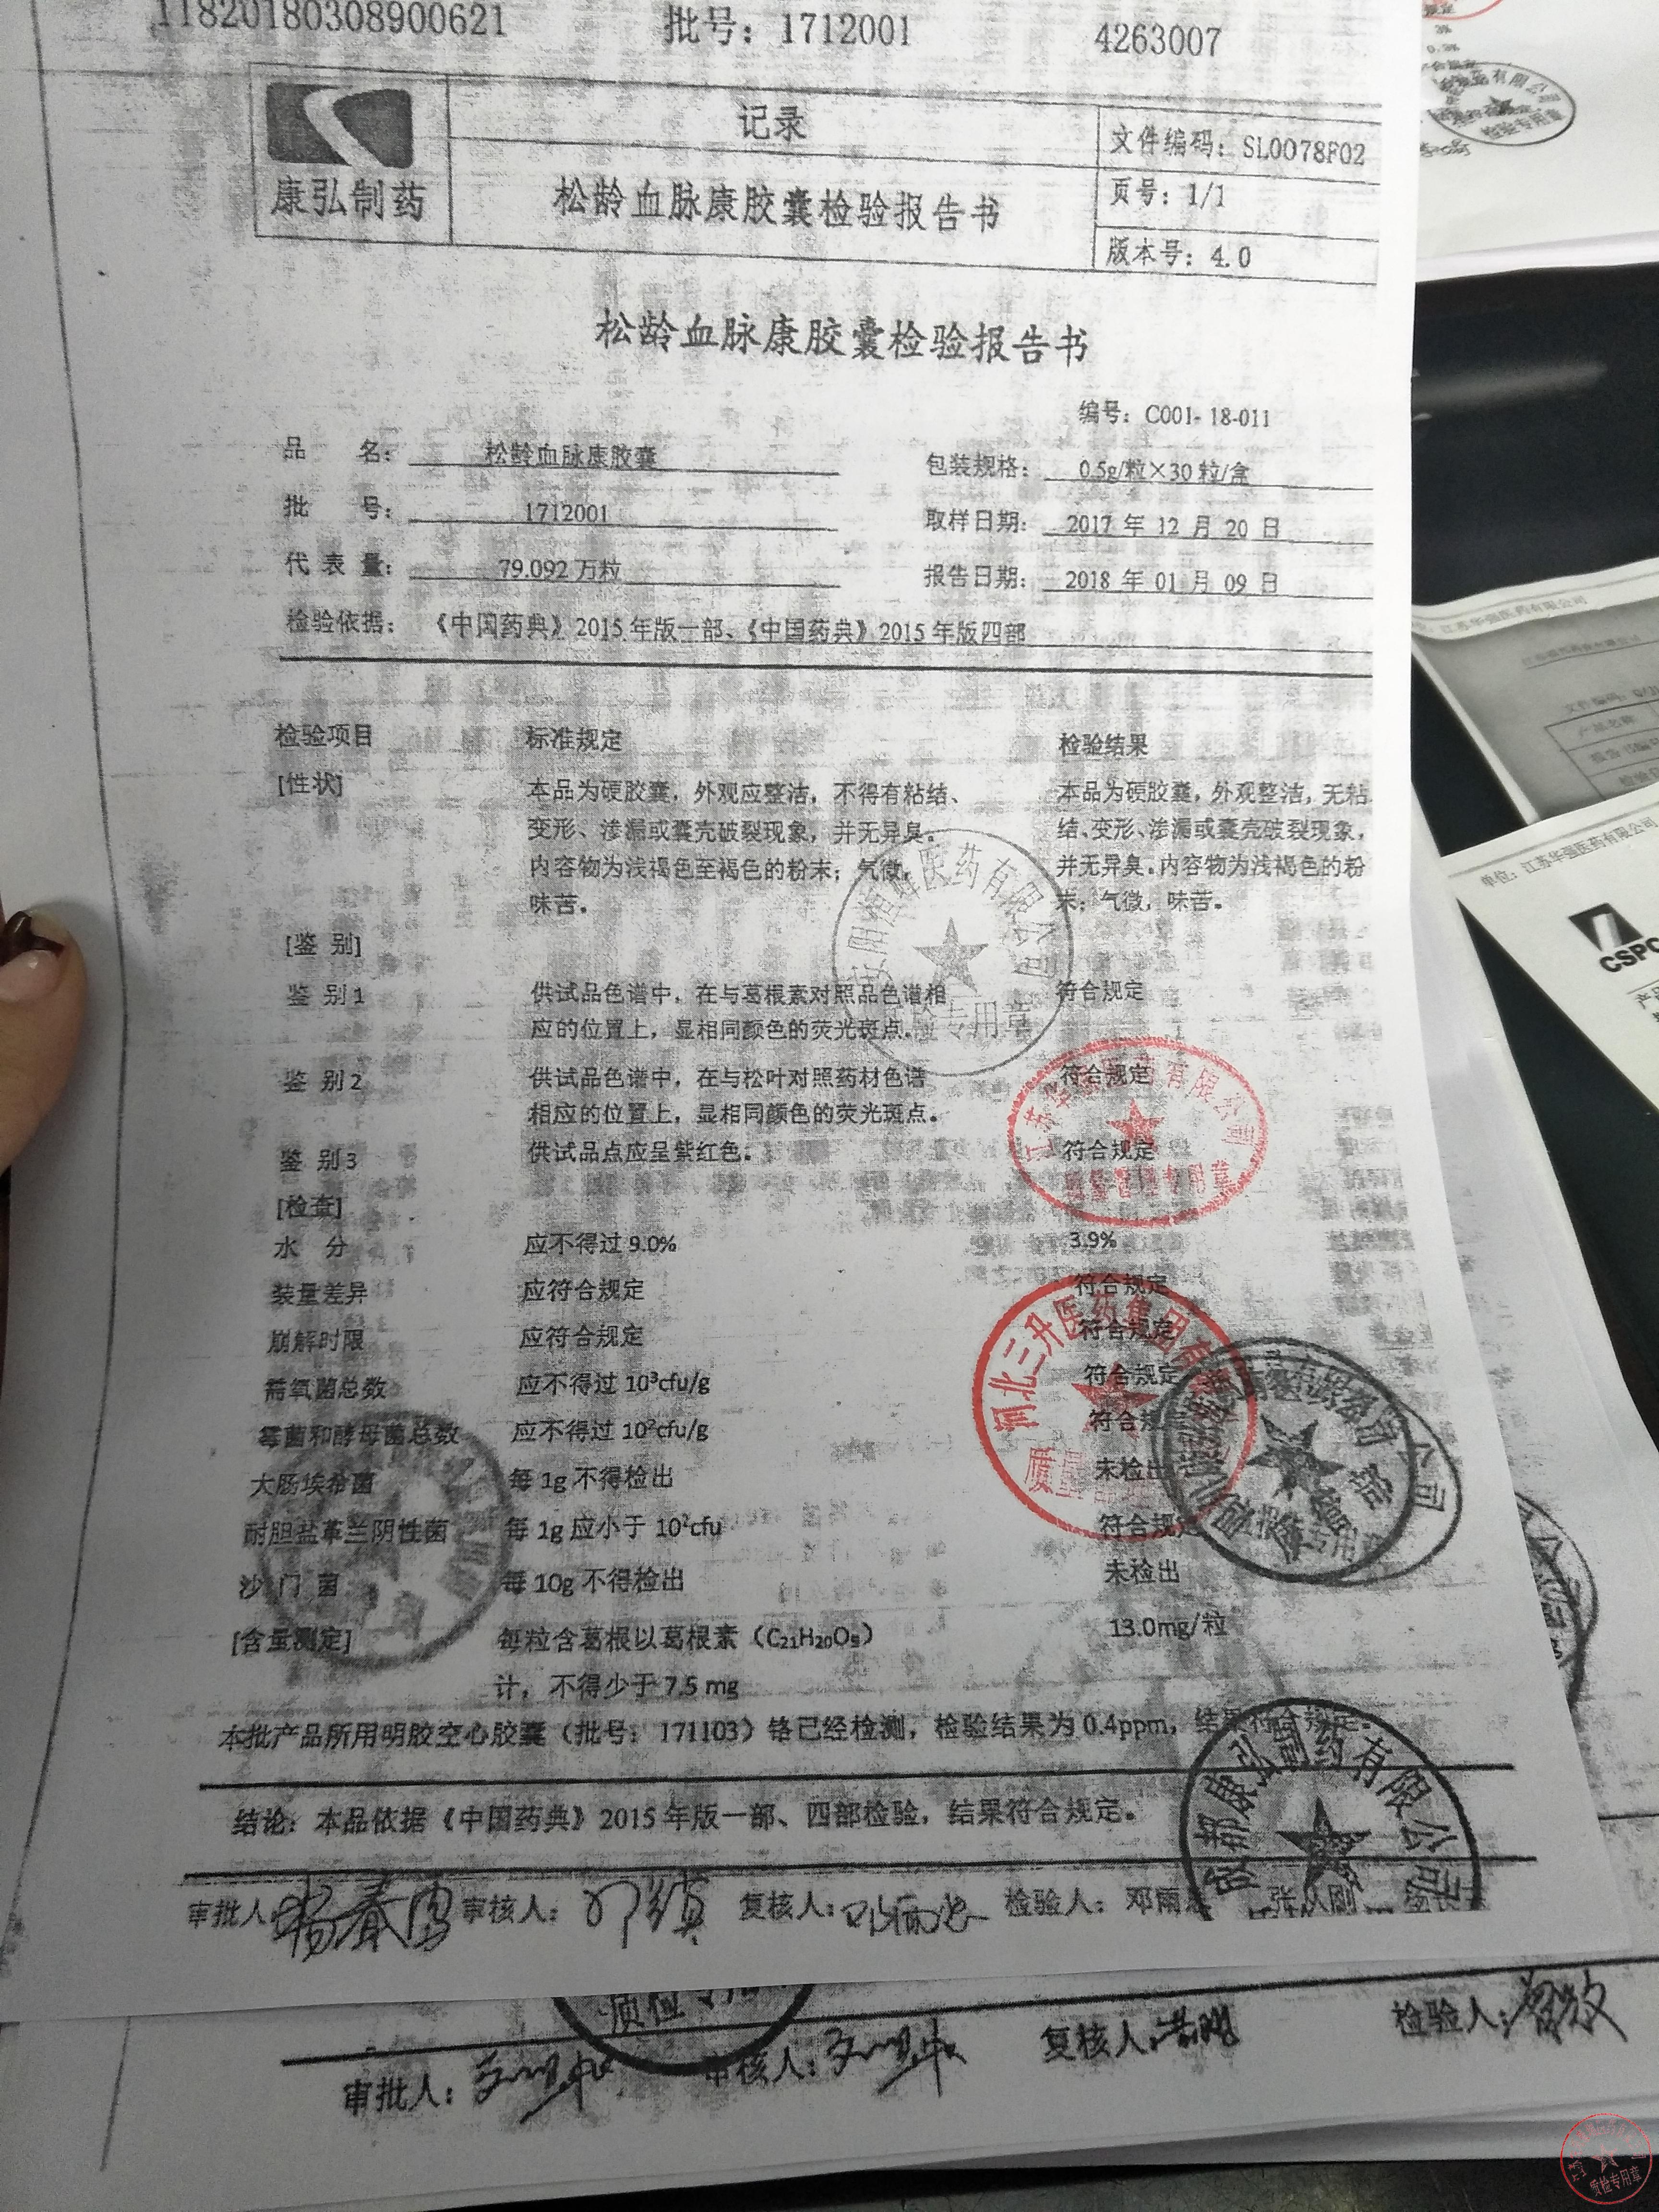 11820180308900621 批号：1712001 4263007
康弘制药
记录
松龄血脉康胶囊检验报告书
文件编码：SL0078F02
页号：1/1
版本号：4.0
松龄血脉康胶囊检验报告书
编号：C001-18-011
品 名：松龄血脉康胶囊 包装规格：0.5g/粒×30粒/盒
批 号：1712001 取样日期：2017 年 12 月 20 日
代 表 量：79.092万粒 报告日期：2018 年 01 月 09 日
检验依据：《中国药典》2015年版一部、《中国药典》2015年版四部
检验项目 标准规定 检验结果
[性状] 本品为硬胶囊，外观应整洁，不得有粘结、 本品为硬胶囊，外观整洁，无粘
变形、渗漏或囊壳破裂现象，并无异臭。 结、变形、渗漏或囊壳破裂现象，
内容物为浅褐色至褐色的粉末；气微， 并无异臭。内容物为浅褐色的粉
味苦。 末；气微，味苦。
[鉴 别]
鉴 别1 供试品色谱中，在与葛根素对照品色谱相 符合规定
应的位置上，显相同颜色的荧光斑点。
鉴 别2 供试品色谱中，在与松叶对照药材色谱 符合规定
相应的位置上，显相同颜色的荧光斑点。
鉴 别3 供试品点应呈紫红色。 符合规定
[检查]
水 分 应不得过9.0% 3.9%
装量差异 应符合规定 符合规定
崩解时限 应符合规定 符合规定
需氧菌总数 应不得过10³cfu/g 符合规定
霉菌和酵母菌总数 应不得过10²cfu/g 符合
大肠埃希菌 每1g不得检出 未检出
耐胆盐革兰阴性菌 每1g应小于10²cfu 符合规定
沙 门 菌 每10g不得检出 未检出
[含量测定] 每粒含葛根以葛根素（C₂₁H₂₀O₉） 13.0mg/粒
计，不得少于7.5 mg
本批产品所用明胶空心胶囊（批号：171103）铬已经检测，检验结果为0.4ppm，结果符合规定。
结论：本品依据《中国药典》2015年版一部、四部检验，结果符合规定。
审批人： 审核人： 复核人： 检验人：邓雨
医药有限公司
专用章
江苏华 有限公司
质量管理专用章
河北三升医药集团有
质量
成都康弘制药有限公司
质检专用
审批人： 审核人： 复核人： 检验人：
检验专用章
江苏华强医药有限公司
文件编码：
产品名称
单位：江苏华强医药有限公司
CSPC
质检专用章